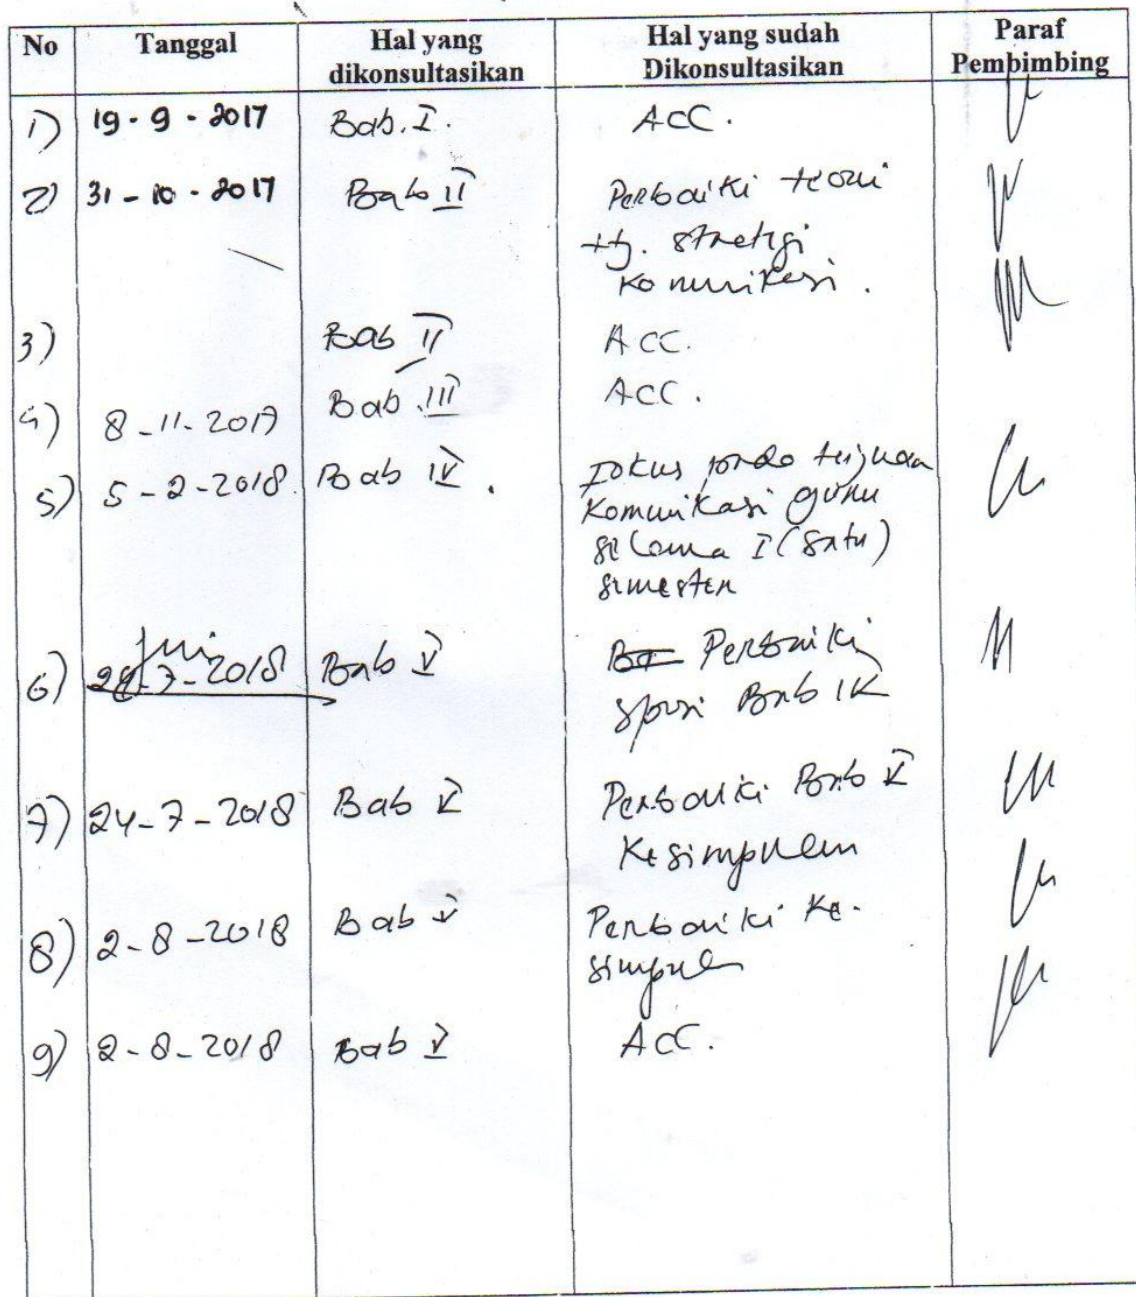 No Tanggal Hal yang dikonsultasikan Hal yang sudah Dikonsultasikan Paraf Pembimbing
1) 19-9-2017 Bab. I. ACC.
2) 31-10-2017 Bab II Perbaiki teori
ttg. strategi
komunikasi.
3) Bab II ACC.
4) 8-11-2017 Bab III ACC.
5) 5-2-2018 Bab IV. Fokus pada tujuan
komunikasi guru
selama I (satu)
semester
6) Juni 2018 Bab V Perbaiki
Bab
7) 24-7-2018 Bab V Perbaiki Bab V
Kesimpulan
8) 2-8-2018 Bab V Perbaiki ke-
simpulan
9) 2-8-2018 Bab V ACC.